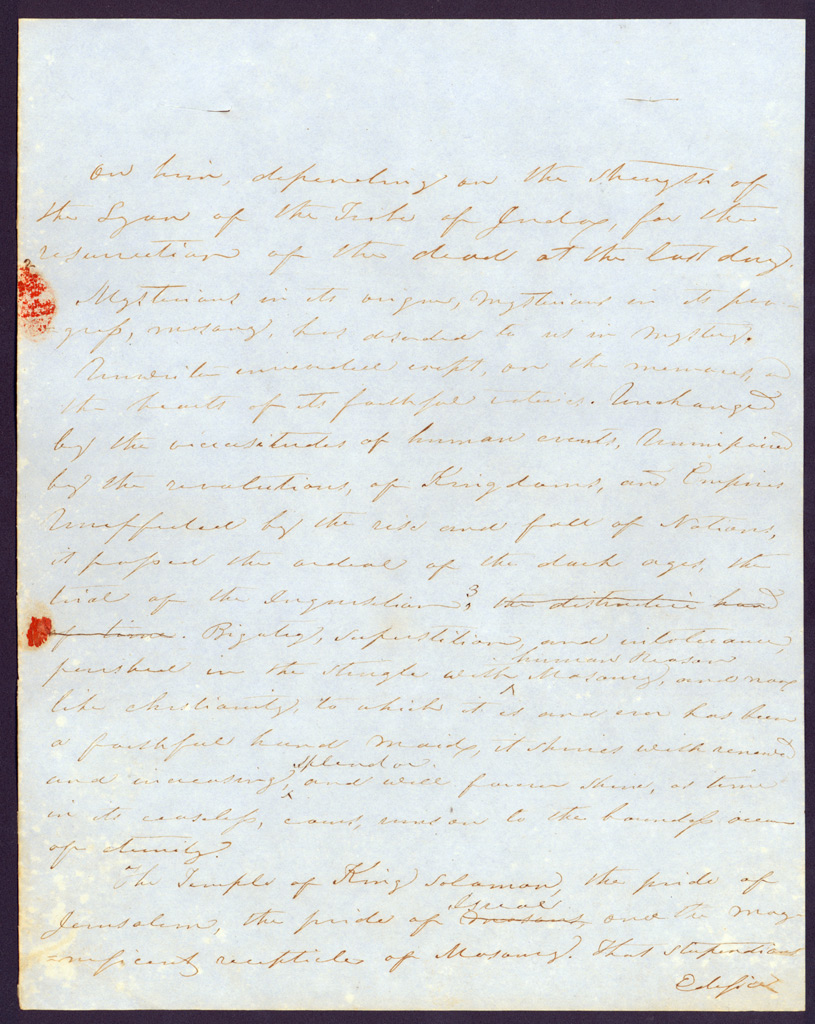 on him, depending on the strength of
the Lyon of the Tribe of Judax, for the
resurrection of the dead at the last day.
Mysterious in its origine, mysterious in its pro-
gress, masonry, has decended to us in mystery.
Unwriten except, on the memory, and
the hearts of its faithful votaries. Unchanged
by the vicissitudes of human events, Unimpaired
by the revolutions, of Kingdoms, and Empires
Unaffected by the rise and fall of Nations,
it passed the ordeal of the dark ages, the
trial of the Inquisition, the distructive hand
of time. Bigotry, superstition, and intolerance,
perished in the strugle with Masonry, and now
human Reason
like christianity, to which it is and ever has been
a faithful hand maid, it shines with renewed
splendor
and increasing, and will forever shine, as time
in its ceaseless, course, runs on to the boundless ocean
of eternity.
The Temple of King Solamon, the pride of
Israel
Jerusalem, the pride of masons, and the mag-
=nificent recepticle of Masonry. That stupendious
Edifice